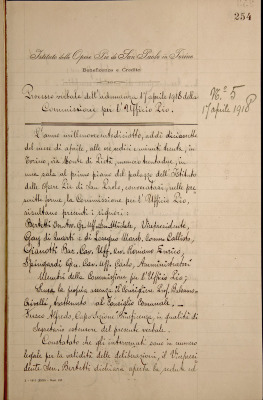 254
Istituto delle Opere Pie di San Paolo in Torino
Beneficenza e Credito
N.° 5
17 aprile 1918
Processo verbale dell'adunanza 17 aprile 1918 della
Commissione per l'Ufficio Pio.
L'anno millenovecentodiciotto, addì diciasette
del mese di aprile, alle ore sedici e minuti trenta, in
Torino, via Monte di Pietà, numero trentadue, in
una sala al primo piano del palazzo dell'Istituto
delle Opere Pie di San Paolo, convocatasi, nelle pre
scritte forme, la Commissione per l'Ufficio Pio,
risultano presenti i signori:
Vicepresidente,
Quarti
Gianotti Cav. Uff. Enrico,
Cav. Uff. Carlo, Amministratori
Membri della Commissione per l'Ufficio Pio;
Scusa la propria assenza il Consigliere Prof.
trattenuto al Consiglio Comunale.
Alfredo, Caposezione Beneficenza, in qualità di
Segretario estensore del presente verbale.
Constatato che gli intervenuti sono in numero
legale per la validità delle deliberazioni, il Vicepresi
dente dichiara aperta la seduta ed